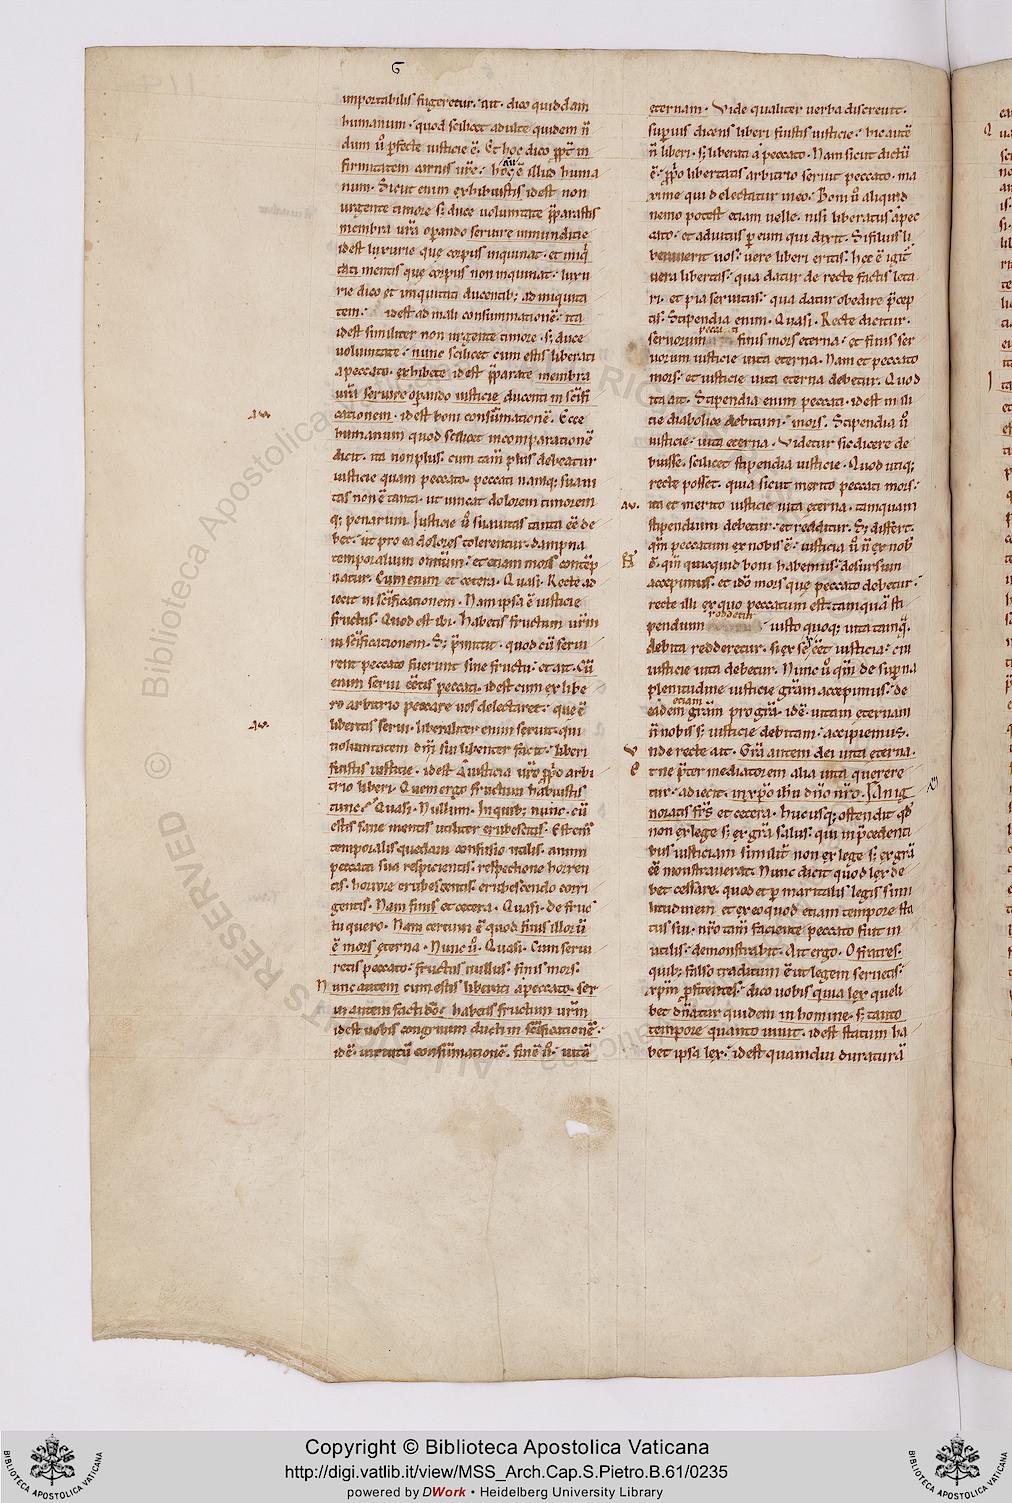 G
importabilis fugeretur. ait. dico quiddam
humanum. quod scilicet adulte quidem n̄
dum ū perfecte iusticie ē. Et hoc dico ꝓpt̄ in
firmitatem carnis ur̄e. hoc ē illud huma
num. Sicut enim exhibuistis idest non
urgente timore sꝫ duce uoluntate p̄parastis
membra ur̄a operando seruire inmundicie
idest luxurie que corpus inquinat. et iniq̄
tati mentis que corpus non inquinat. luxu
rie dico et iniquitati ducentibꝫ ad iniquita
tem. idest ad mali consummationē. ita
idest similiter non urgente timore. sꝫ duce
uoluntate. nunc scilicet cum estis liberati
a peccato. exhibete idest p̄parate membra
ur̄a seruire operando iusticie ducenti in sc̄ifi
cationem. idest boni consūmationē. Ecce
humanum quod scilicet in comparationē
dicit. ita non plus. cum tam̄ plus debeatur
iusticie quam peccato. peccati namqꝫ suaui
tas non ē tanta. ut uincat dolorem timorem
qꝫ penarum. Iusticie ū suauitas tanta ēē de
bet. ut pro ea dolores tolerentur. dampna
temporalium omium. et etiam mors contēp
natur. Cum enim et cetera. Quasi. Recte ad
iecit in sc̄ificationem. Nam ipsa ē iusticie
fructus. Quod est ibi. habetis fructum ur̄m
in sc̄ificationem. Sꝫ p̄mittit. quod cū serui
rent peccato fuerint sine fructu. et ait. Cū
enim serui ēētis peccati. idest cum ex libe
ro arbitrio peccare uos delectaret. que ē
libertas serui. liberaliter enim seruit. qui
uoluntatem dn̄i sui libenter facit. liberi
fuistis iusticie. idest a iusticia ur̄o ꝓpo arbi
trio liberi. Quem ergo fructum habuistis
tunc. Quasi. Nullum. In quibꝫ nunc. cū
estis sane mentis utiliter erubescitis. Est enī
temporalis quedam confusio utilis. animi
peccata sua respicientis. respectione horren
tis. horrore erubescentis. erubescendo corri
gentis. Nam finis et cetera. Quasi. de fruc
tu quero. Nam certum ē quod finis illorū
ē mors eterna. Nunc ū. Quasi. Cum serui
retis peccato. fructus nullus. finis mors.
Nunc autem cum estis liberati a peccato. ser
ui autem facti deo. habetis fructum ur̄m
idest uobis congruum ductum sc̄ificationē.
idē uirtutū consūmationē. finē ū. uitā
eternam. Vide qualiter uerba discreuit.
superius dicens liberi fuistis iusticie. hic autē
n̄ liberi. sꝫ liberati a peccato. Nam sicut dictū
ē. ꝓpo libertatis arbitrio seruit peccato. ma
xime qui delectatur in eo. Boni ū aliquid
nemo potest etiam uelle. nisi liberatus a pec
cato. et adiutus per eum qui dixit. Si filius li
berauerit uos. uere liberi eritis. hec ē igit̄
uera libertas. qua datur de recte factis leta
ri. et pia seruitus. qua datur obedire p̄cep
tis. Stipendia enim. Quasi. Recte dicitur.
seruorum peccati finis mors eterna. et finis ser
uorum iusticie uita eterna. Nam et peccato
mors. et iusticie uita eterna debetur. Quod
ita ait. Stipendia enim peccati. idest mili
cie diabolice debitum. mors. Stipendia ū
iusticie. uita eterna. Videtur sic dicere de
buisse. scilicet stipendia iusticie. Quod utiqꝫ
recte posset. quia sicut merito peccati mors.
Au. ita et merito iusticie uita eterna. tamquam
stipendium debetur. et redditur. Sꝫ differt.
qm̄ peccatum ex nobis ē. iusticia ū n̄ ex nob̄
ē. qm̄ quicquid boni habemus. desursum
accepimus. et idō mors que peccato debetur.
recte illi ex quo peccatum est. tamquā sti
pendium redderetur iusto quoqꝫ uita tamq̄.
debita redderetur. si ex se eēt iusticia. cui
iusticie uita debetur. Nunc ū qm̄ de superna
plenitudine iusticie gr̄am accepimus. de
eadem etiam gr̄am pro gr̄a. idē uitam eternam
n̄ nobis sꝫ iusticie debitam. accipiemus.
Vnde recte ait. Gr̄a autem dei uita eterna.
Et ne p̄ter mediatorem alia uita querere
tur. adiecit. in xp̄o ih̄u dn̄o nr̄o. An ig
noratis fr̄s et cetera. hucusqꝫ ostendit qd̄
non ex lege sꝫ ex gr̄a salus. qui in p̄cedenti
bus iusticiam similit̄ non ex lege sꝫ ex gr̄a
ēē monstrauerat. Nunc dicit quod lex de
bet cessare. quod et per maritalis legis simi
litudinem et ex eo quod etiam tempore sta
tus sui. nr̄o tam̄ faciente peccato fuit in
utilis. demonstrabit. Ait ergo. O fratres.
quibꝫ falso traditum ē ut legem seruetis.
xp̄m profitentes. dico uobis quia lex queli
bet dn̄atur quidem in homine. sꝫ tanto
tempore quanto uiuit. idest statum ha
bet ipsa lex. idest quamdiu duraturā
Copyright © Biblioteca Apostolica Vaticana
http://digi.vatlib.it/view/MSS_Arch.Cap.S.Pietro.B.61/0235
powered by DWork • Heidelberg University Library